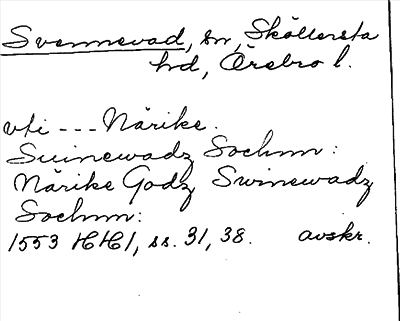 Svennevad, sn, Sköllersta
hrd, Örebro l.
vti --- Närike.
Suinewadz Sochnn:
Närike Godz Swinewadz
Sochnn:
1553 HH1, ss. 31, 38. avskr.